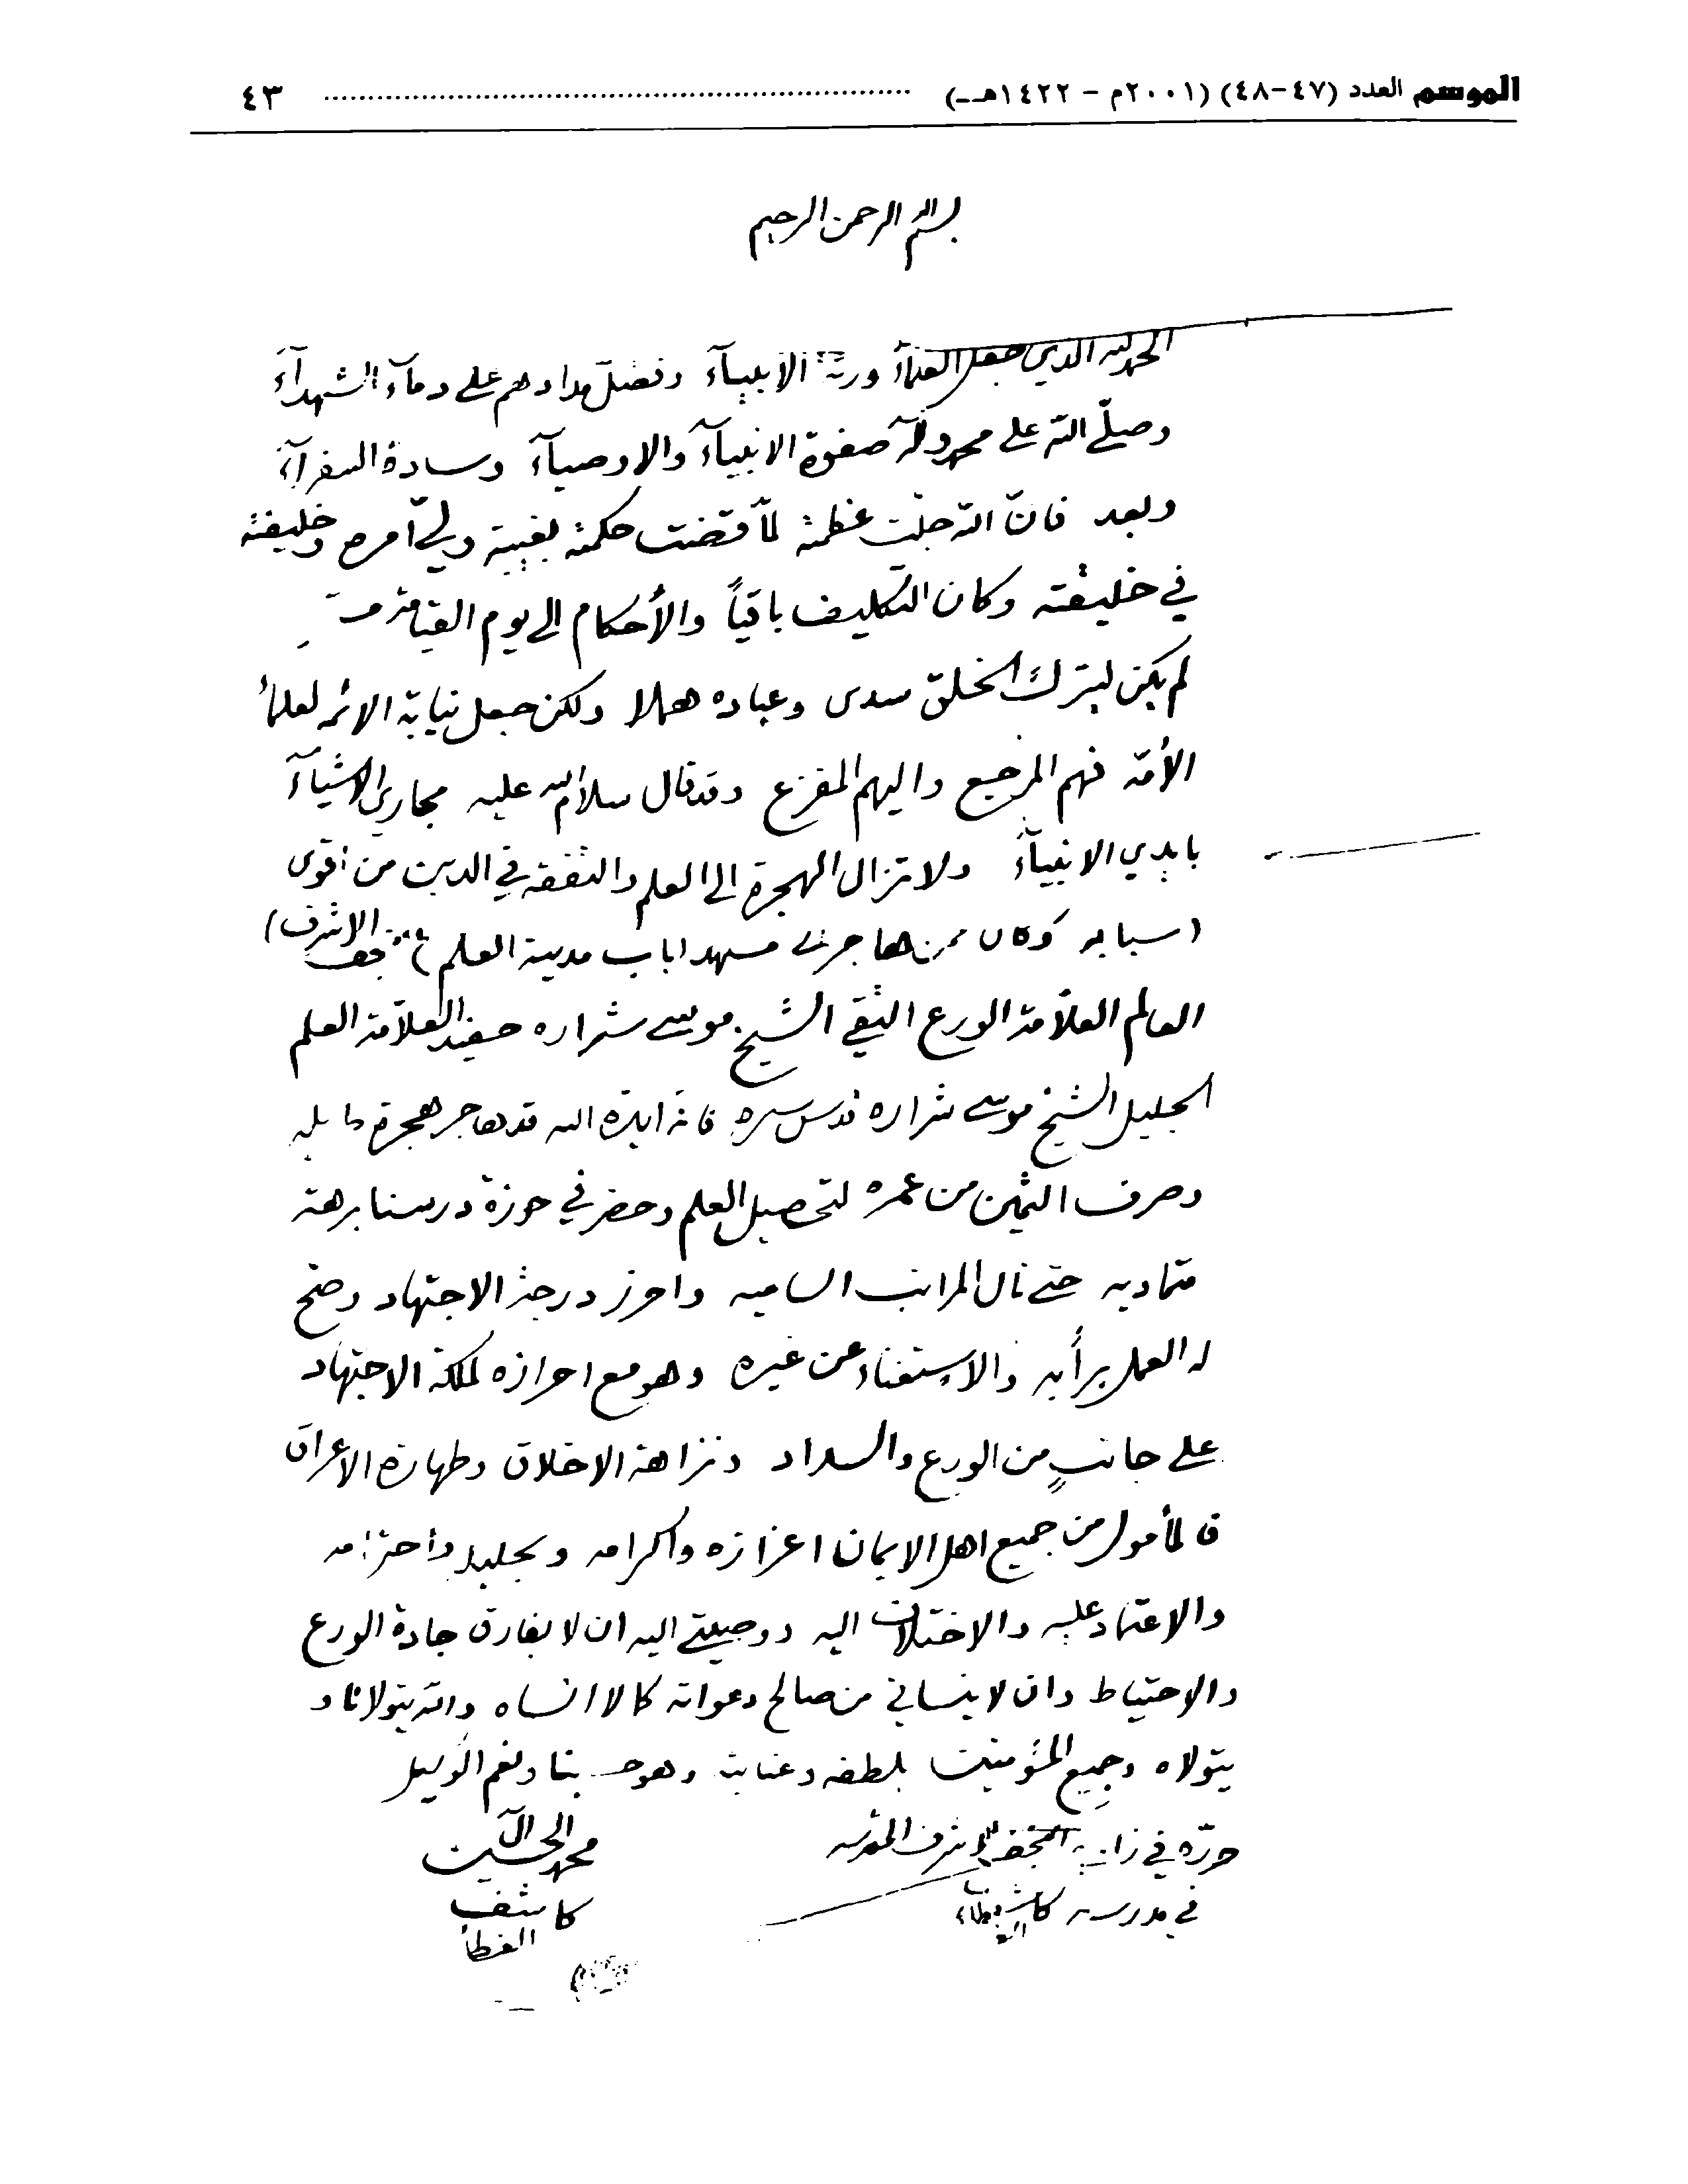 الموسم العدد (٤٧-٤٨) (٢٠٠١م - ١٤٢٢هـ) ٤٣
بسم الله الرحمن الرحيم
الحمد لله الذي جعل العلمآء ورثة الانبيآء وفضّل مدادهم على دمآء الشهدآء
وصلّى الله على محمد وآله صفوة الانبيآء والاوصيآء وسادة السفرآء
وبعد فانّ الله جلّت عظمته لمّا قتضت حكمته بغيبة وليّ أمره وخليفته
في خليقته وكان التكليف باقياً والأحكام الى يوم القيامة
لم يكن ليترك الخلق سدى وعباده هملا ولكن جعل نيابة الائمه لعلمآء
الأمّه فهم المرجع واليهم المفزع وقد قال سلام الله عليه مجاري الاشيآء
بايدي الانبيآء ولا تزال الهجرة الى العلم والتفقه في الدين من أقوى
اسبابه وكان ممن هاجر الى باب مدينة العلم (النجف الاشرف)
العالم العلاّمة الورع التقي الشيخ موسى شراره حفيد العلاّمة العلم
الجليل الشيخ موسى شراره قدس سره فانه ايده الله قد هاجر هجرة
وصرف الثمين من عمره لتحصيل العلم وحضر في حوزة درسنا برهة
متماديه حتى نال المراتب الساميه واحرز درجة الاجتهاد وصحّ
له العمل برأيه والاستغناء عن غيره وهو مع احرازه لملكة الاجتهاد
على جانبٍ من الورع والسداد ونزاهة الاخلاق وطهارة الاعراق
فالمأمول من جميع اهل الايمان اعزازه واكرامه وتجليله واحترامه
والاعتماد عليه والاختلاف اليه ووصيتي اليه ان لا يفارق جادة الورع
والاحتياط وان لا ينساني من صالح دعواته كما لا انساه والله يتولانا و
يتولاه وجميع المؤمنين بلطفه وعنايته وهو حسبنا ونعم الوكيل
حرّره في النجف الاشرف المقدسه
في مدرسة كاشف الغطاء
محمد الحسين آل
كاشف
الغطاء